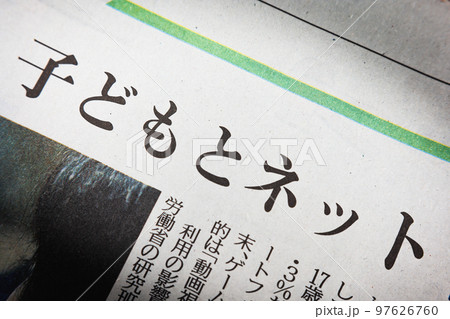 子どもとネット
し、
17歳
・3%
ートフ
末、ゲーム
的は「動画視
利用の影響
労働省の研究班
PIXTA
pixta.jp - 97626760